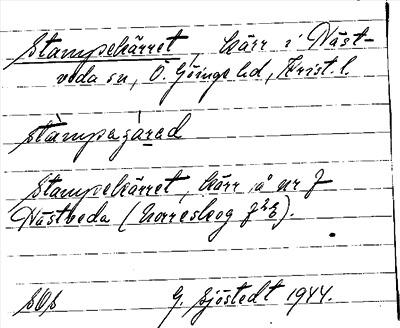 Stampekärret, kärr i Näst-
veda sn, Ö. Göinge hd, Krist. l.
stàmpagárad
Stampekärret, kärr å nr 7
Nästveda (Norreskog
G. Sjöstedt 1944.